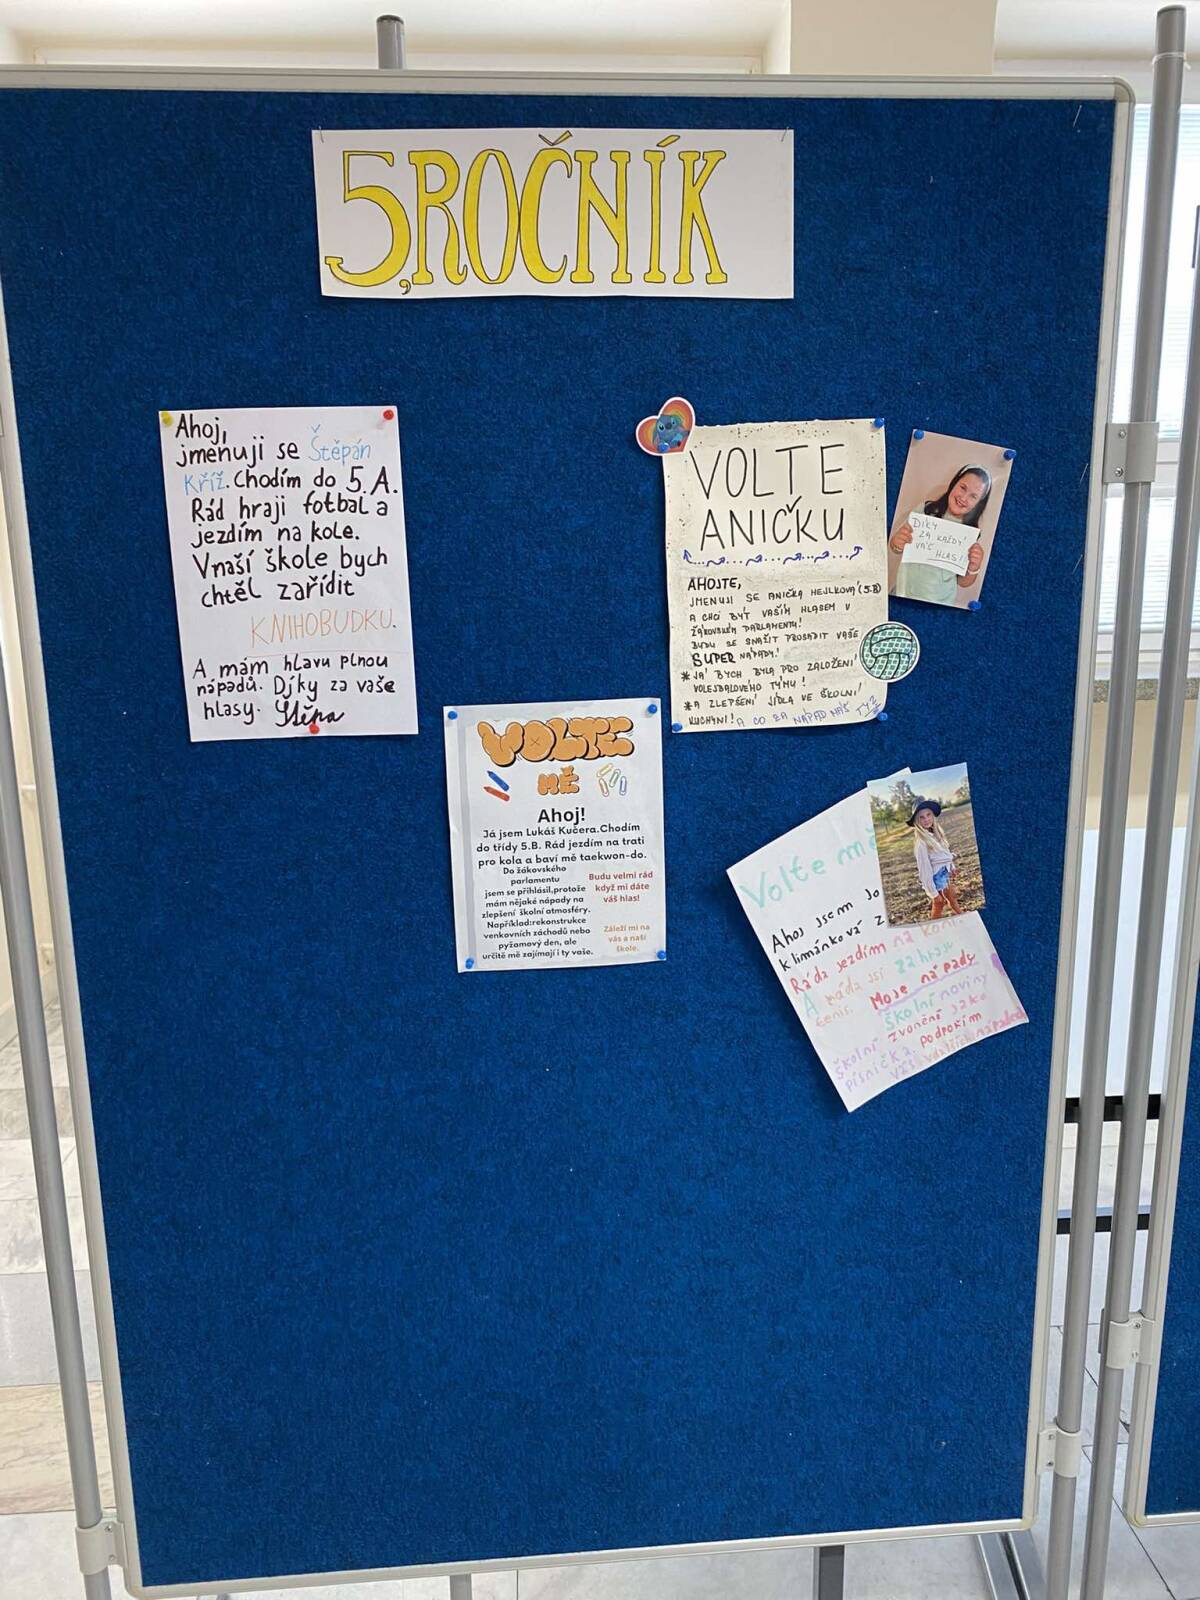 5. ROČNÍK
Ahoj,
jmenuji se Štěpán
Kříž. Chodím do 5.A.
Rád hraji fotbal a
jezdím na kole.
V naší škole bych
chtěl zařídit
KNIHOBUDKU.
A mám hlavu plnou
nápadů. Djky za vaše
hlasy. Štěpa
VOLTE
ANIČKU
AHOJTE,
JMENUJI SE ANIČKA HEJLKOVÁ (5.B)
A CHCI BÝT VAŠÍM HLASEM V
ŽÁKOVSKÉM PARLAMENTU!
BUDU SE SNAŽIT PROSADIT VAŠE
SUPER NÁPADY!
* JÁ BYCH BYLA PRO ZALOŽENÍ
VOLEJBALOVÉHO TÝMU!
* A ZLEPŠENÍ JÍDLA VE ŠKOLNÍ
KUCHYNI! A CO ZA NÁPAD MÁŠ TY?
DÍKY
ZA KAŽDÝ
VÁŠ
HLAS!
VOLTE
MĚ
Ahoj!
Já jsem Lukáš Kučera.Chodím
do třídy 5.B. Rád jezdím na trati
pro kola a baví mě taekwon-do.
Do žákovského
parlamentu
jsem se přihlásil,protože
mám nějaké nápady na
zlepšení školní atmosféry.
Například:rekonstrukce
venkovních záchodů nebo
pyžamový den, ale
určitě mě zajímají i ty vaše.
Budu velmi rád
když mi dáte
váš hlas!
Záleží mi na
vás a naší
škole.
Volte mě
Ahoj jsem
Klimánková z
Ráda jezdím na
A ráda si zahraju
tenis. Moje nápady
školní noviny
školní zvonění jako
písnička. podpořím